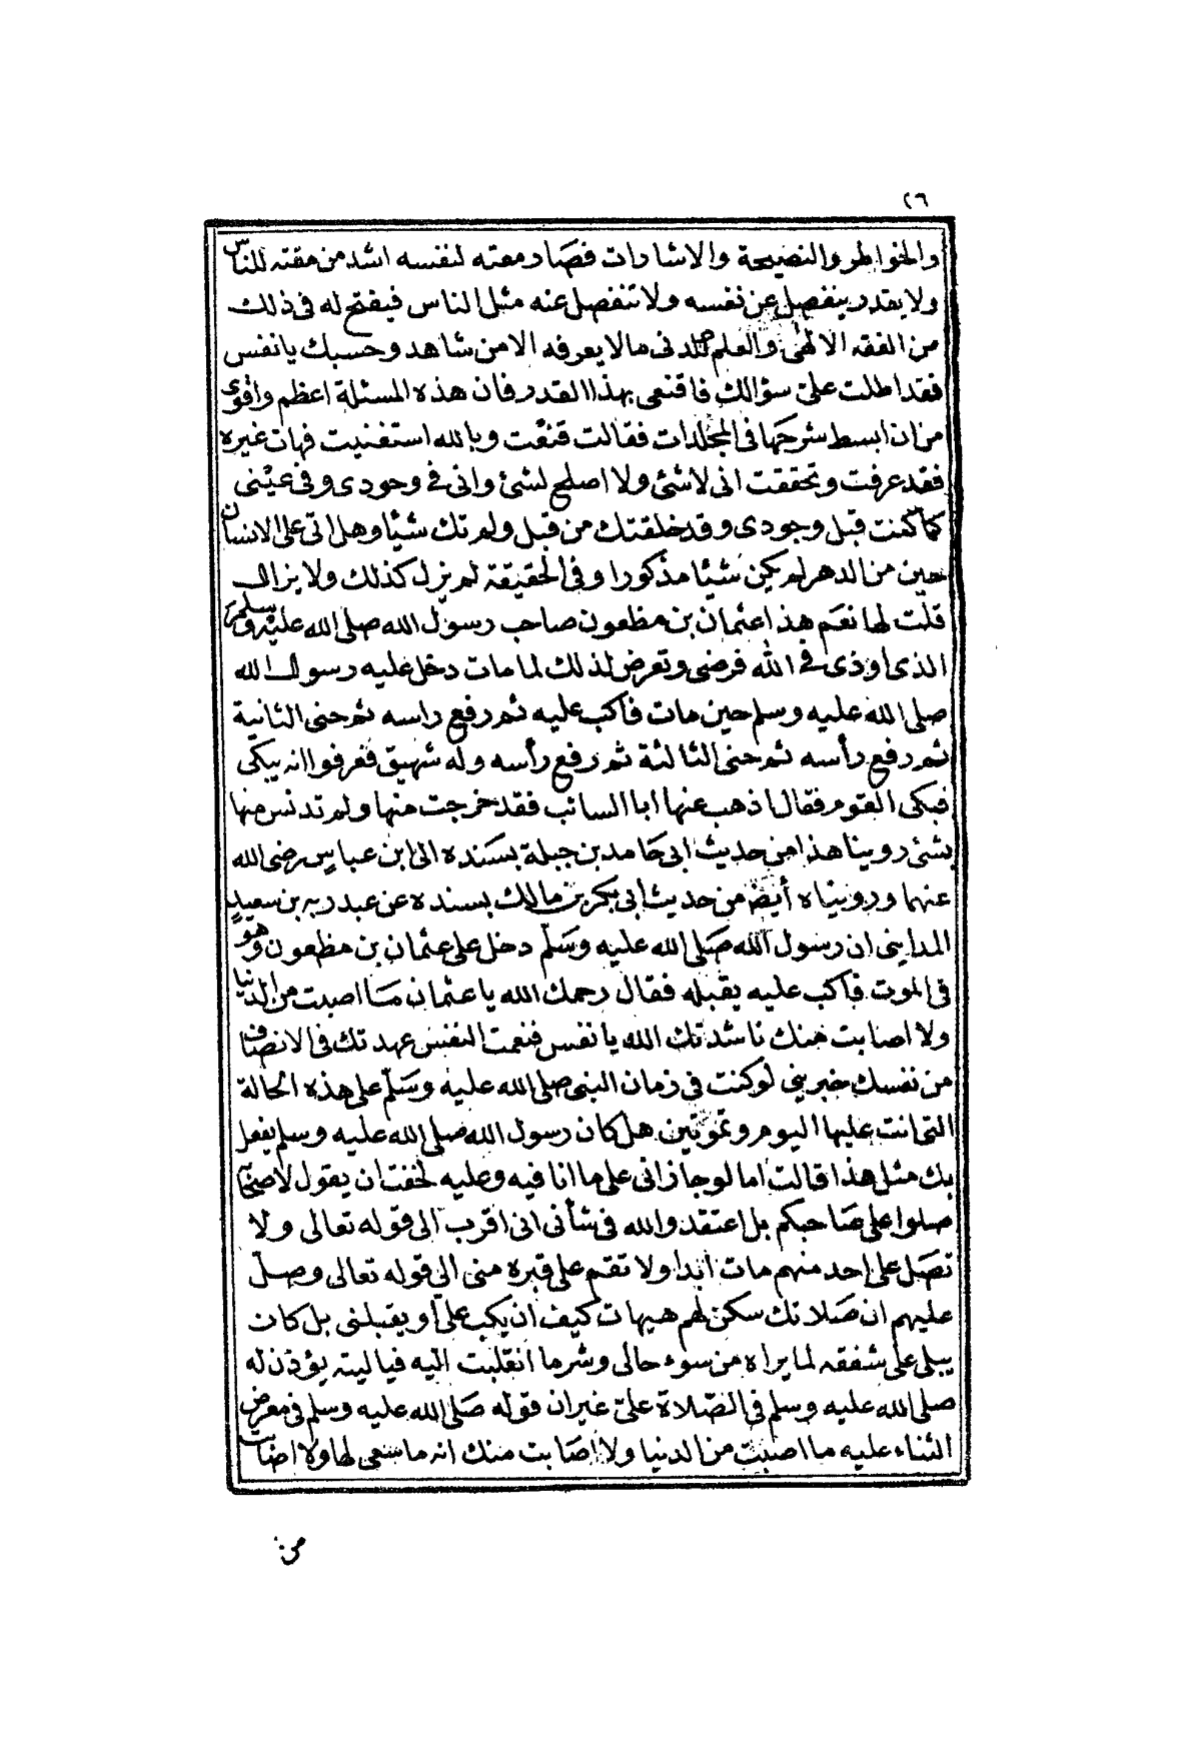 ٢٦
والخواطر والنصيحة والاشارات فصار مقته لنفسه اشد من مقته للناس
ولا يقدر ينفصل عن نفسه ولا تنفصل عنه مثل الناس فيفتح له فى ذلك
من الفقه الالهى والعلم اللدنى ما لا يعرفه الا من شاهد وحسبك يا نفس
فقد اطلت علىّ سؤالك فاقنعى بهذا القدر فان هذه المسئلة اعظم واقوى
من ان ابسط شرحها فى المجلدات فقالت قنعت وبالله استغنيت فهات غيره
فقد عرفت وتحققت انى لا شئ ولا اصلح لشئ وانى فى وجودى وفى عينى
كما كنت قبل وجودى وقد خلقتك من قبل ولم تك شيئا وهل اتى على الانسان
حين من الدهر لم يكن شيئا مذكورا وفى الحقيقة لم يزل كذلك ولا يزال
قلت لها نعم هذا عثمان بن مظعون صاحب رسول الله صلى الله عليه وسلم
الذى اوذى فى الله فرضى وتعرض لذلك لما مات دخل عليه رسول الله
صلى الله عليه وسلم حين مات فاكب عليه ثم رفع راسه ثم حنى الثانية
ثم رفع رأسه ثم حنى الثالثة ثم رفع رأسه وله شهيق فعرفوا انه يبكى
فبكى القوم فقال اذهب عنها ابا السائب فقد خرجت منها ولم تدنس منها
بشئ روينا هذا من حديث ابى حامد بن جبلة بسنده الى ابن عباس رضى الله
عنهما ورويناه أيضا من حديث أبى بكر بن مالك بسنده عن عبد ربه بن سعيد
المداينى ان رسول الله صلى الله عليه وسلم دخل على عثمان بن مظعون وهو
فى الموت فاكب عليه يقبله فقال رحمك الله يا عثمان ما اصبت من الدنيا
ولا اصابت منك ناشدتك الله يا نفس فنعمت النفس عهدتك فى الانصاف
من نفسك خبرينى لو كنت فى زمان النبى صلى الله عليه وسلم على هذه الحالة
التى انت عليها اليوم وتموتين هل كان رسول الله صلى الله عليه وسلم يفعل
بك مثل هذا قالت اما لو جازانى على ما انا فيه وعليه لخفت ان يقول لاصحابه
صلوا على صاحبكم بل اعتقد والله فى شأنى انى اقرب الى قوله تعالى ولا
تصل على احد منهم مات ابدا ولا تقم على قبره منى الى قوله تعالى وصلّ
عليهم ان صلاتك سكن لهم هيهات كيف ان يكب علىّ او يقبلنى بل كان
يبكى على شفقه لما يراه من سوء حالى وشر ما انقلبت اليه فيا ليته يؤذن له
صلى الله عليه وسلم فى الصلاة علىّ غير ان قوله صلى الله عليه وسلم فى معرض
الثناء عليه ما اصبت من الدنيا ولا اصابت منك انه ما سعى لها ولا اصابت
من